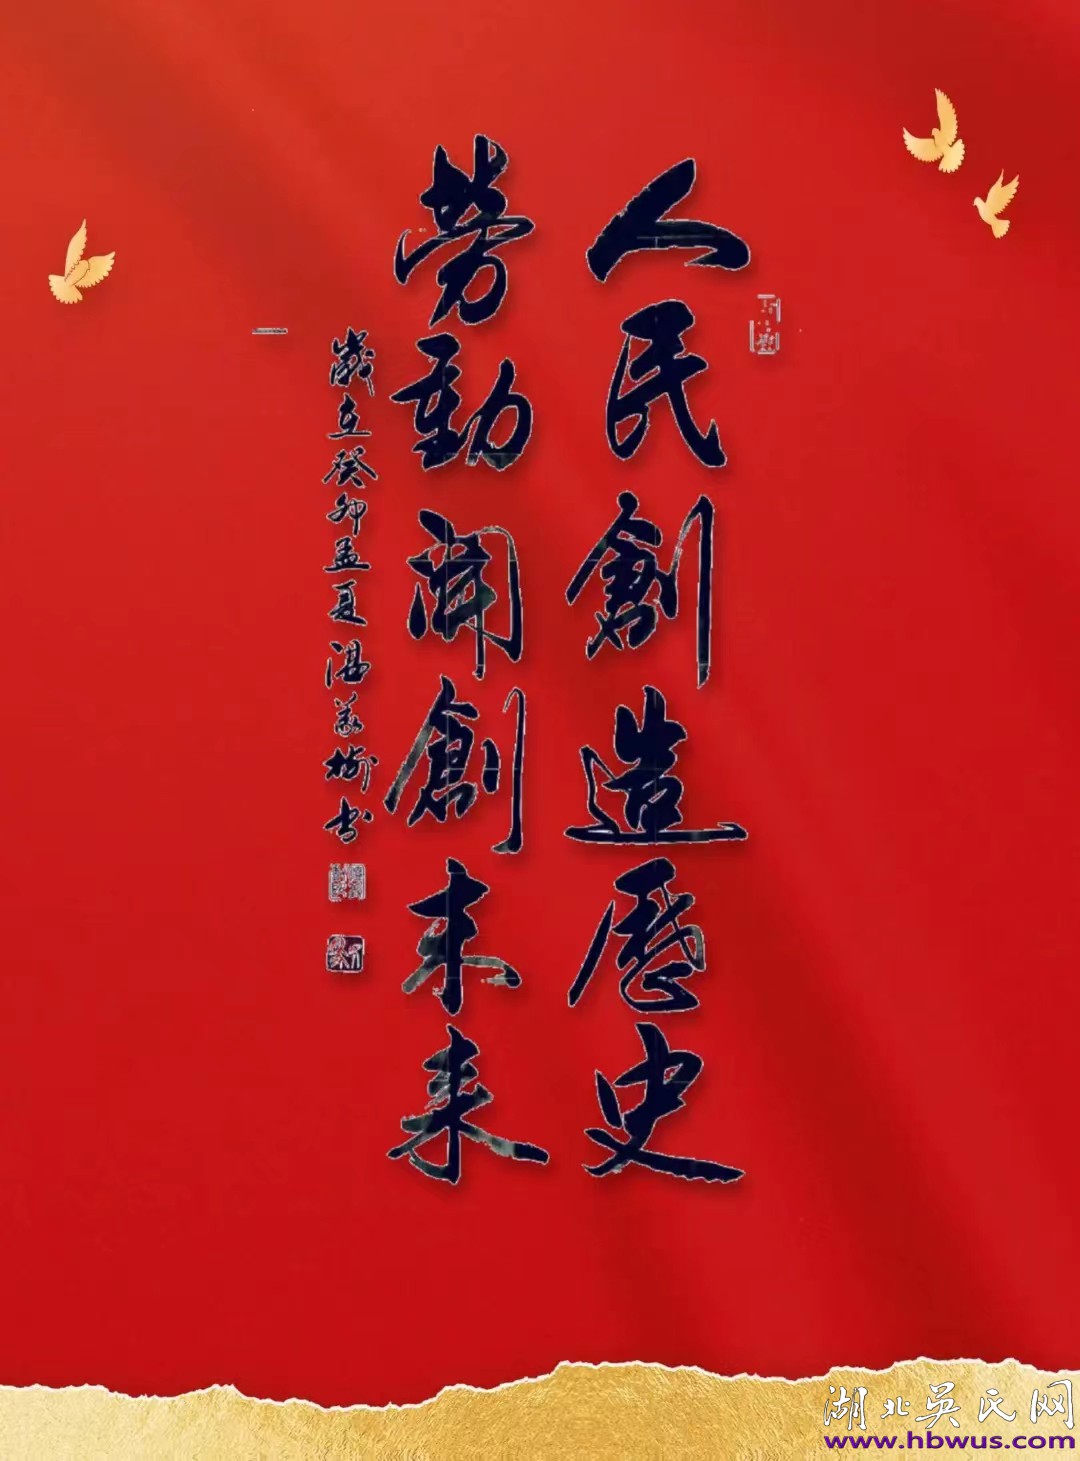 人民創造歷史
勞動開創未来
歲在癸卯孟夏湯義樹书
湖北吴氏网
www.hbwus.com